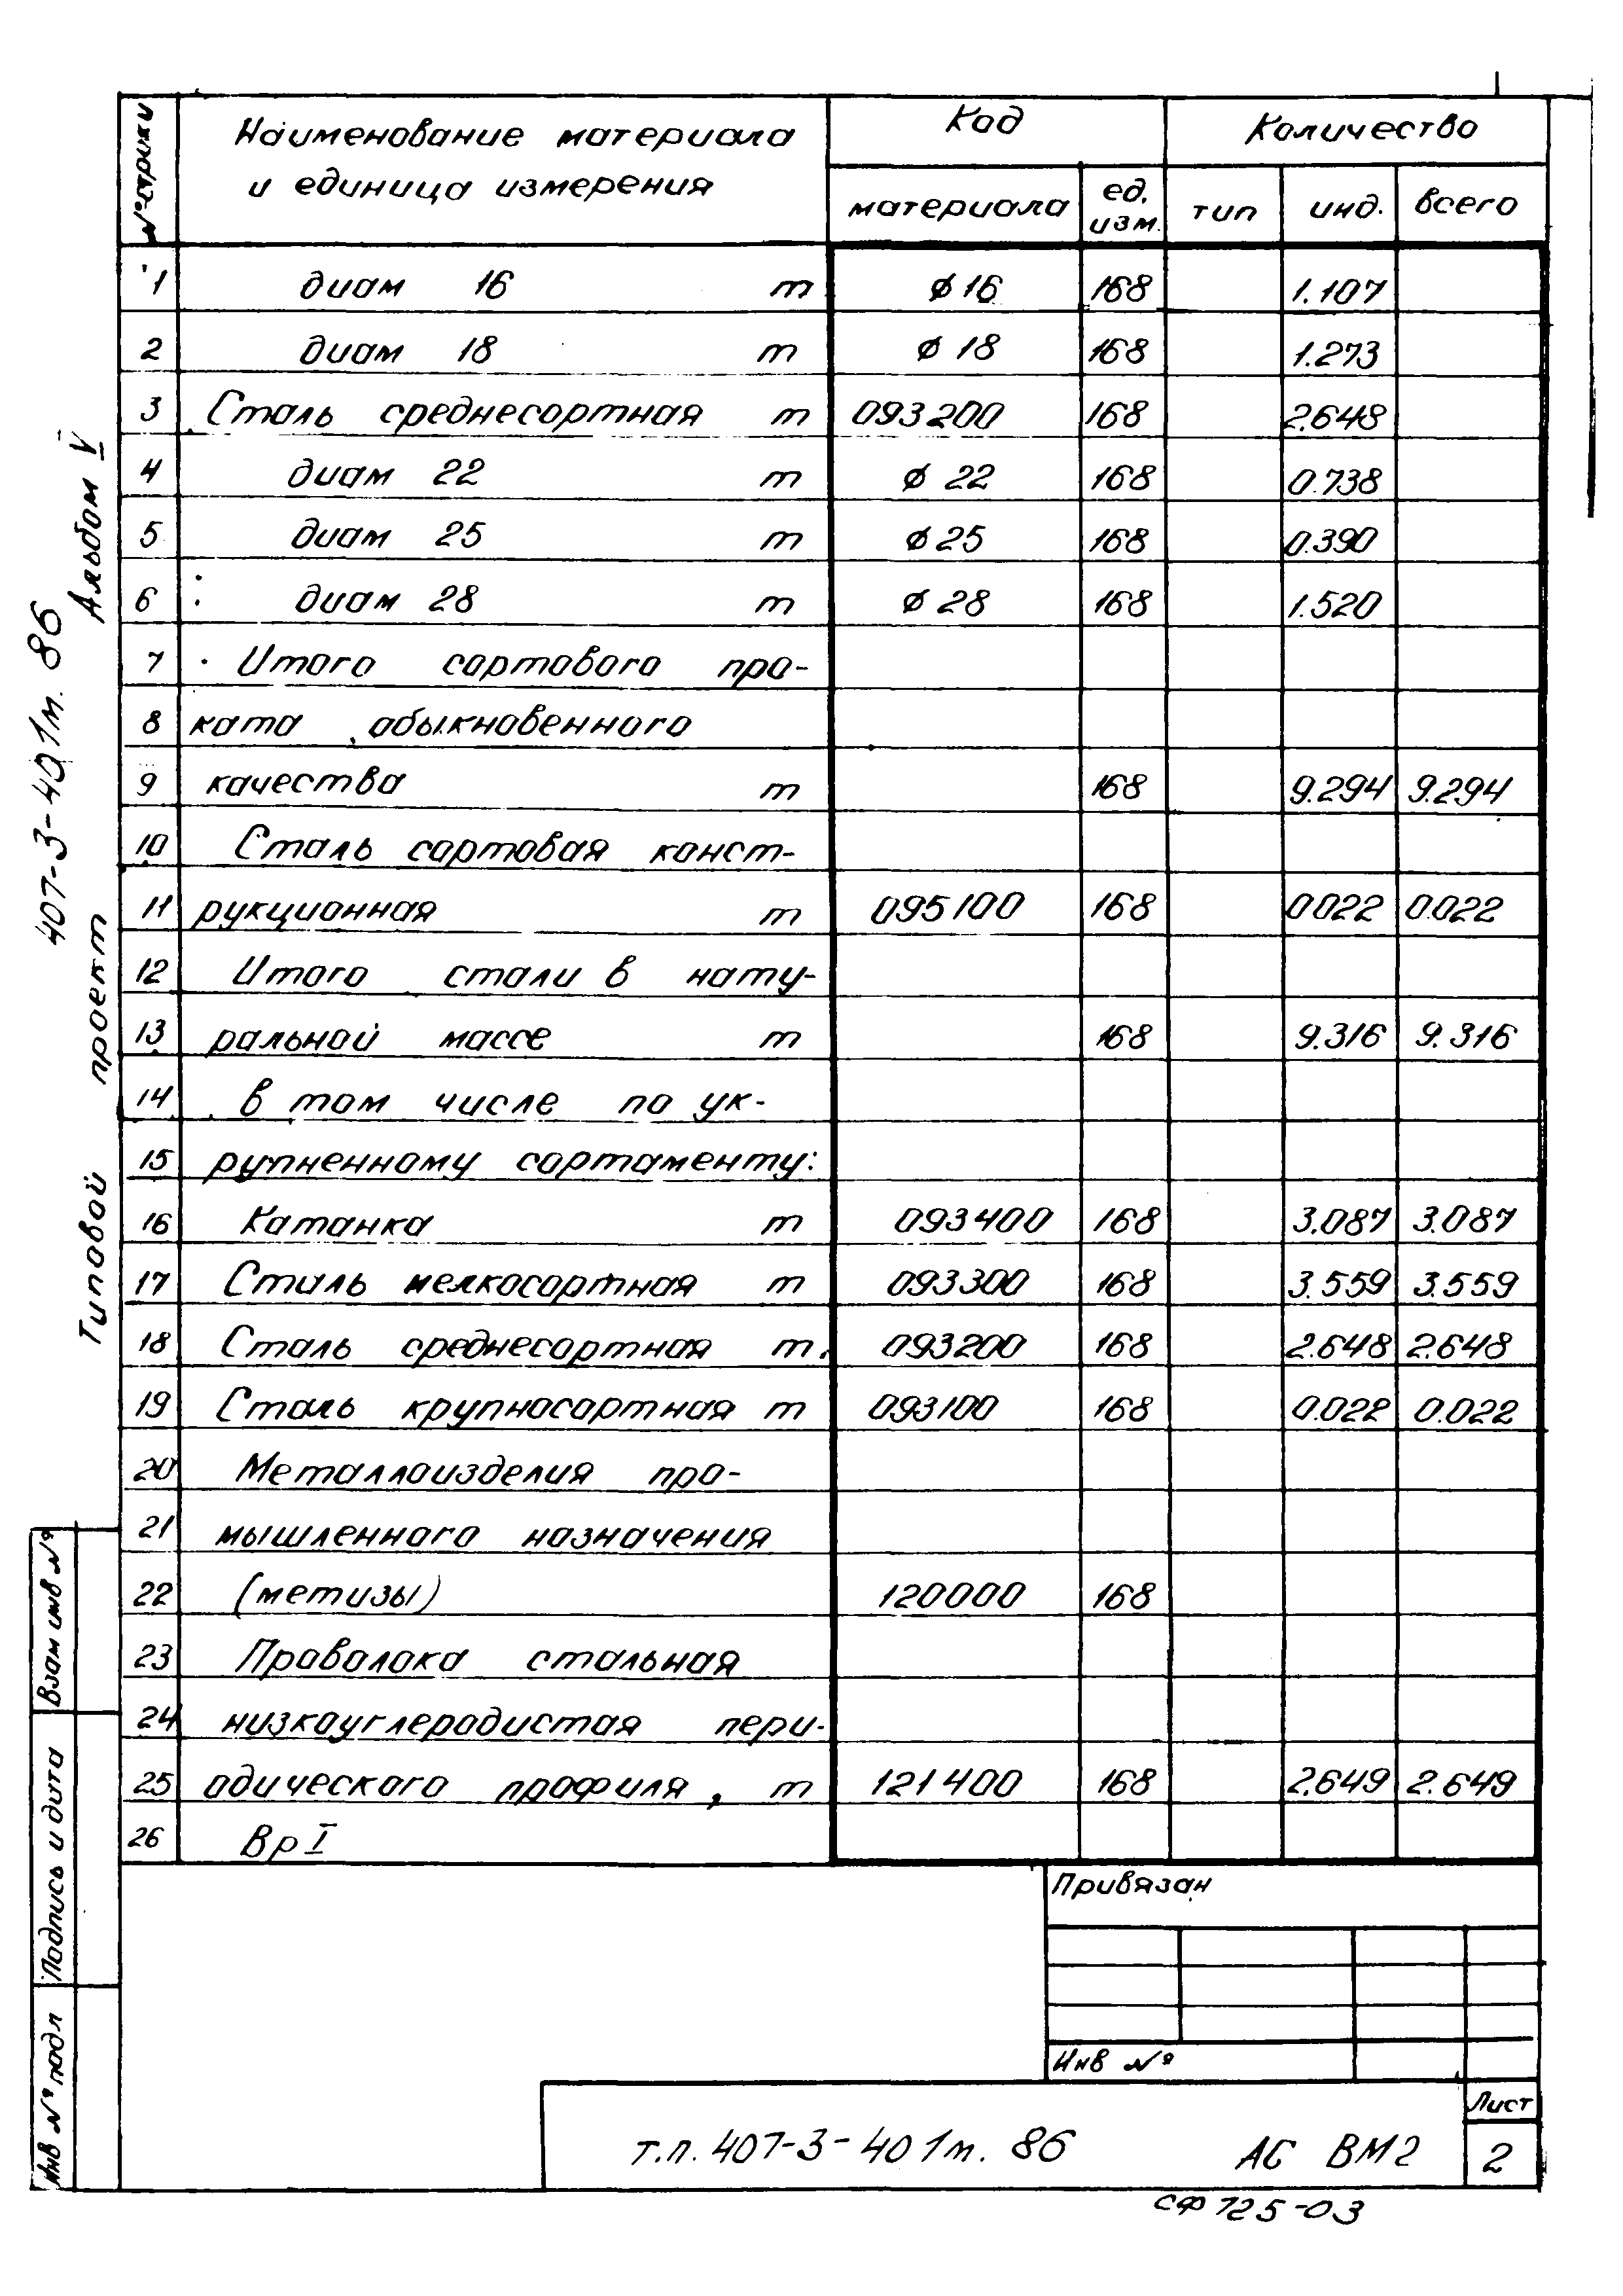 № строки
Наименование материала
и единица измерения
Код
Количество
материала
ед.
изм.
тип
инд.
всего
1 диам 16 т ϕ 16 168 1.107
2 диам 18 т ϕ 18 168 1.273
3 Сталь среднесортная т 093200 168 2.648
4 диам 22 т ϕ 22 168 0.738
5 диам 25 т ϕ 25 168 0.390
6 диам 28 т ϕ 28 168 1.520
7 Итого сортового про-
8 ката обыкновенного
9 качества т 168 9.294 9.294
10 Сталь сортовая конст-
11 рукционная т 095100 168 0022 0.022
12 Итого стали в нату-
13 ральной массе т 168 9.316 9.316
14 в том числе по ук-
15 рупненному сортаменту:
16 Катанка т 093400 168 3.087 3.087
17 Сталь мелкосортная т 093300 168 3.559 3.559
18 Сталь среднесортная т. 093200 168 2.648 2.648
19 Сталь крупносортная т 093100 168 0.022 0.022
20 Металлоизделия про-
21 мышленного назначения
22 (метизы) 120000 168
23 Проволока стальная
24 низкоуглеродистая пери-
25 одического профиля, т 121400 168 2.649 2.649
26 Вр I
Альбом V
Типовой проект 407-3-401м. 86
Взам инв №
Подпись и дата
Инв № подл
Привязан
Инв №
т.п. 407-3-401м. 86 АС ВМ2
Лист
2
сф 725-03